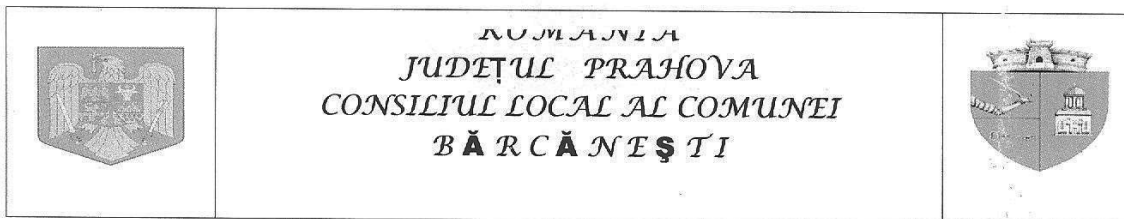 ROMANIA
JUDEȚUL PRAHOVA
CONSILIUL LOCAL AL COMUNEI
BĂRCĂNEŞTI